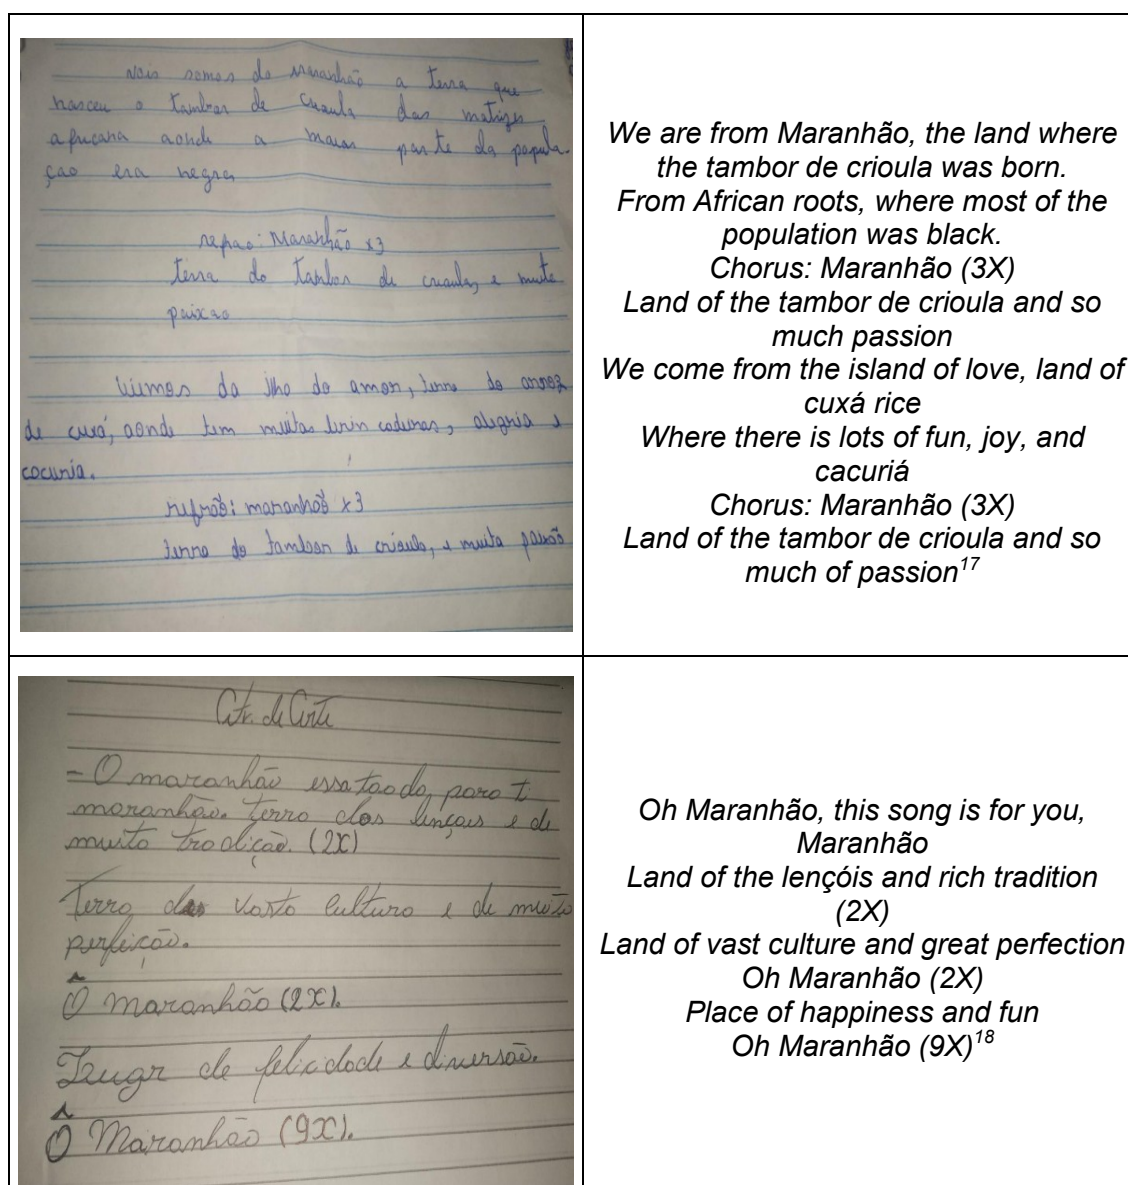 nois somos do maranhão a terra que
nasceu o tambor de criaula das matrizes
africana aonde a maior parte da popula-
çao era negra
refrao: Maranhão x3
terra do tambor de criaula, e muita
paixao
Viemos da ilha do amor, terra do arroz
de cuxá, aonde tem muitas brin cadeiras, alegria e
cacuria.
refrão: maranhão x3
terra do tambor de crioula, e muita paixão
We are from Maranhão, the land where
the tambor de crioula was born.
From African roots, where most of the
population was black.
Chorus: Maranhão (3X)
Land of the tambor de crioula and so
much passion
We come from the island of love, land of
cuxá rice
Where there is lots of fun, joy, and
cacuriá
Chorus: Maranhão (3X)
Land of the tambor de crioula and so
much of passion17
de
- O maranhão essa para ti
maranhão. terra dos lençois e de
muita tradição. (2X)
Terra vasta cultura e de muita
perfeição.
Ô maranhão (2X).
Lugar de felicidade e diversão.
Ô Maranhão (9X).
Oh Maranhão, this song is for you,
Maranhão
Land of the lençóis and rich tradition
(2X)
Land of vast culture and great perfection
Oh Maranhão (2X)
Place of happiness and fun
Oh Maranhão (9X)18